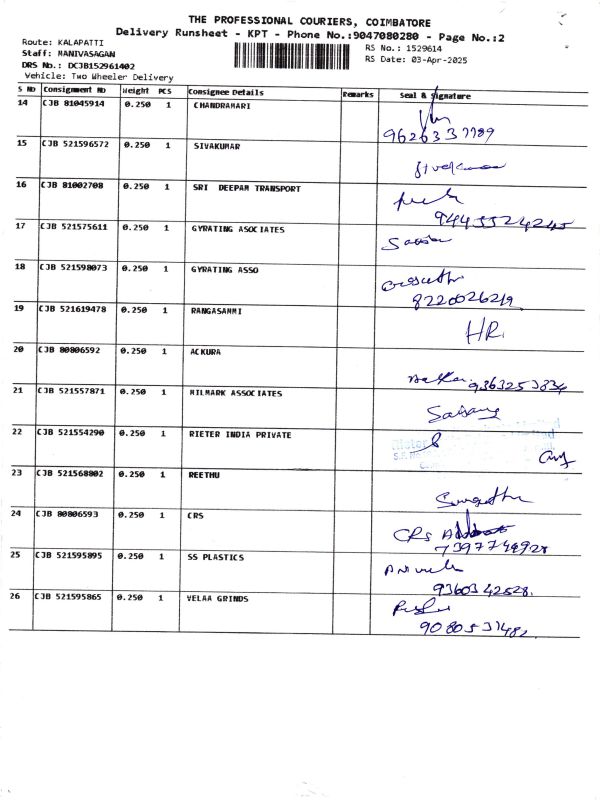 THE PROFESSIONAL COURIERS, COIMBATORE
Delivery Runsheet - KPT - Phone No.:9047080280 - Page No.:2
Route: KALAPATTI
RS No.: 1529614
Staff: MANIVASAGAN
RS Date: 03-Apr-2025
DRS No.: DCJB152961402
Vehicle: Two Wheeler Delivery
S No Consignment No Weight PCS Consignee Details Remarks Seal & Signature
14 CJB 81045914 0.250 1 CHANDRAMARI
15 CJB 521596572 0.250 1 SIVAKUMAR
16 CJB 81002708 0.250 1 SRI DEEPAM TRANSPORT
17 CJB 521575611 0.250 1 GYRATING ASOCIATES
18 CJB 521598073 0.250 1 GYRATING ASSO
8220026219
19 CJB 521619478 0.250 1 RANGASAMMI
HR
20 CJB 80806592 0.250 1 ACKURA
9363253834
21 CJB 521557871 0.250 1 MILMARK ASSOCIATES
22 CJB 521554290 0.250 1 RIETER INDIA PRIVATE
23 CJB 521568802 0.250 1 REETHU
24 CJB 80806593 0.250 1 CRS
CRS
25 CJB 521595895 0.250 1 SS PLASTICS
9360342528.
26 CJB 521595865 0.250 1 VELAA GRINDS